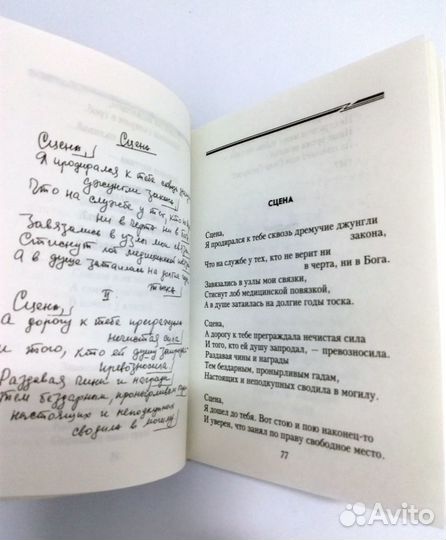 Сцена
Сцена,
Я продирался к тебе сквозь
джунгли закона,
Что на службе у тех, кто не
ни в черта, ни в Бога.
Завязались в узлы мои
Стиснут лоб медицинской
А в душе затаилась на долгие
тоска.
II.
Сцена,
А дорогу к тебе преграждала
нечистая сила
и того, кто ей душу
превозносила
Раздавая чины и награды
тем бездарным, пронырливым
настоящих и неподкупных
сводила в могилу.
СЦЕНА
Сцена,
Я продирался к тебе сквозь дремучие джунгли
закона,
Что на службе у тех, кто не верит ни
в черта, ни в Бога.
Завязались в узлы мои связки,
Стиснут лоб медицинской повязкой,
А в душе затаилась на долгие годы тоска.
Сцена,
А дорогу к тебе преграждала нечистая сила
И того, кто ей душу запродал, — превозносила.
Раздавая чины и награды
Тем бездарным, пронырливым гадам,
Настоящих и неподкупных сводила в могилу.
Сцена,
Я дошел до тебя. Вот стою и пою наконец-то
И уверен, что занял по праву свободное место.
77
Avito